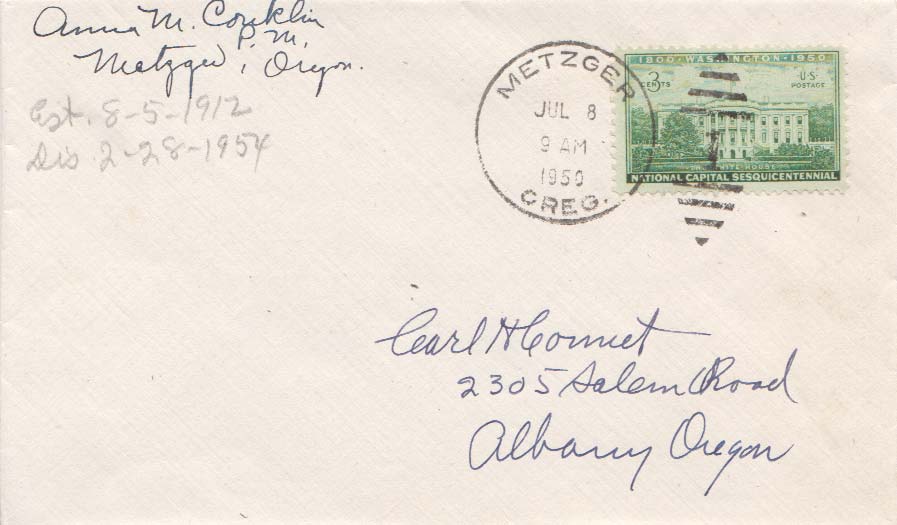 Anna M. Conklin
P.M.
Metzger, Oregon.
Est. 8-5-1912
Dis. 2-28-1954
METZGER
JUL 8
9 AM
1950
OREG.
1800 · WASHINGTON · 1950
3 CENTS
U·S· POSTAGE
THE WHITE HOUSE
NATIONAL CAPITAL SESQUICENTENNIAL
1
Carl H Connet
2305 Salem Road
Albany Oregon